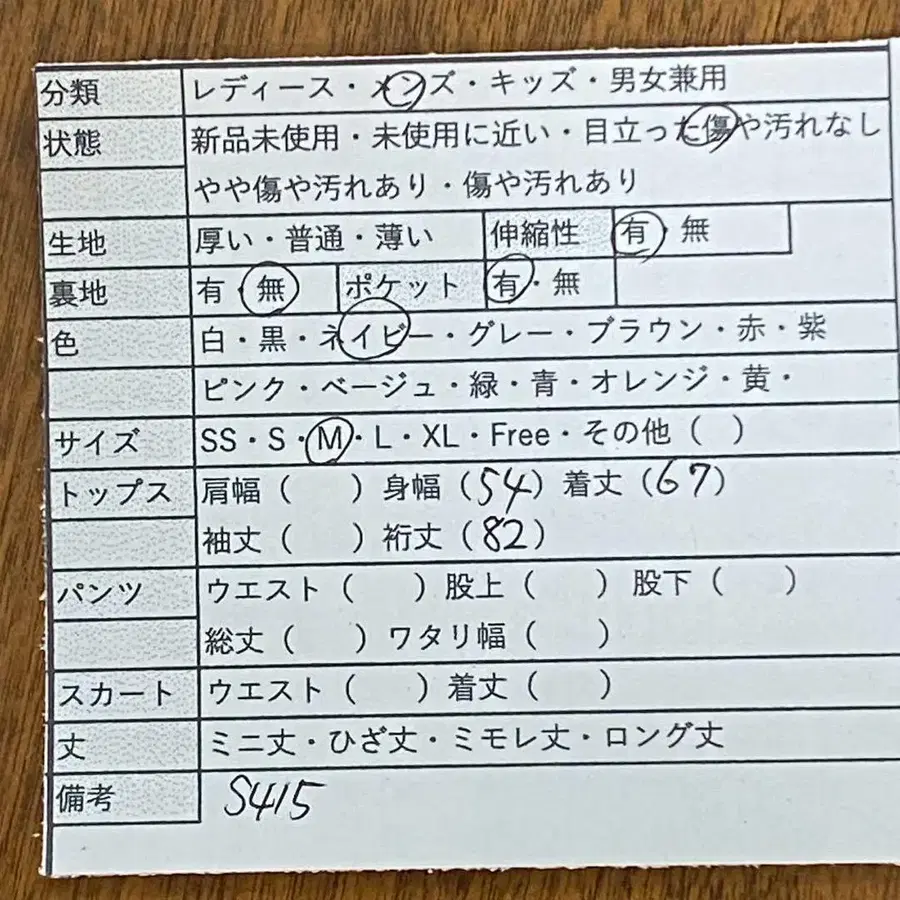 分類 レディース・メンズ・キッズ・男女兼用
状態 新品未使用・未使用に近い・目立った傷や汚れなし
やや傷や汚れあり・傷や汚れあり
生地 厚い・普通・薄い 伸縮性 有・無
裏地 有・無 ポケット 有・無
色 白・黒・ネイビー・グレー・ブラウン・赤・紫
ピンク・ベージュ・緑・青・オレンジ・黄・
サイズ SS・S・M・L・XL・Free・その他( )
トップス 肩幅( )身幅(54)着丈(67)
袖丈( )裄丈(82)
パンツ ウエスト( )股上( )股下( )
総丈( )ワタリ幅( )
スカート ウエスト( )着丈( )
丈 ミニ丈・ひざ丈・ミモレ丈・ロング丈
備考 S415